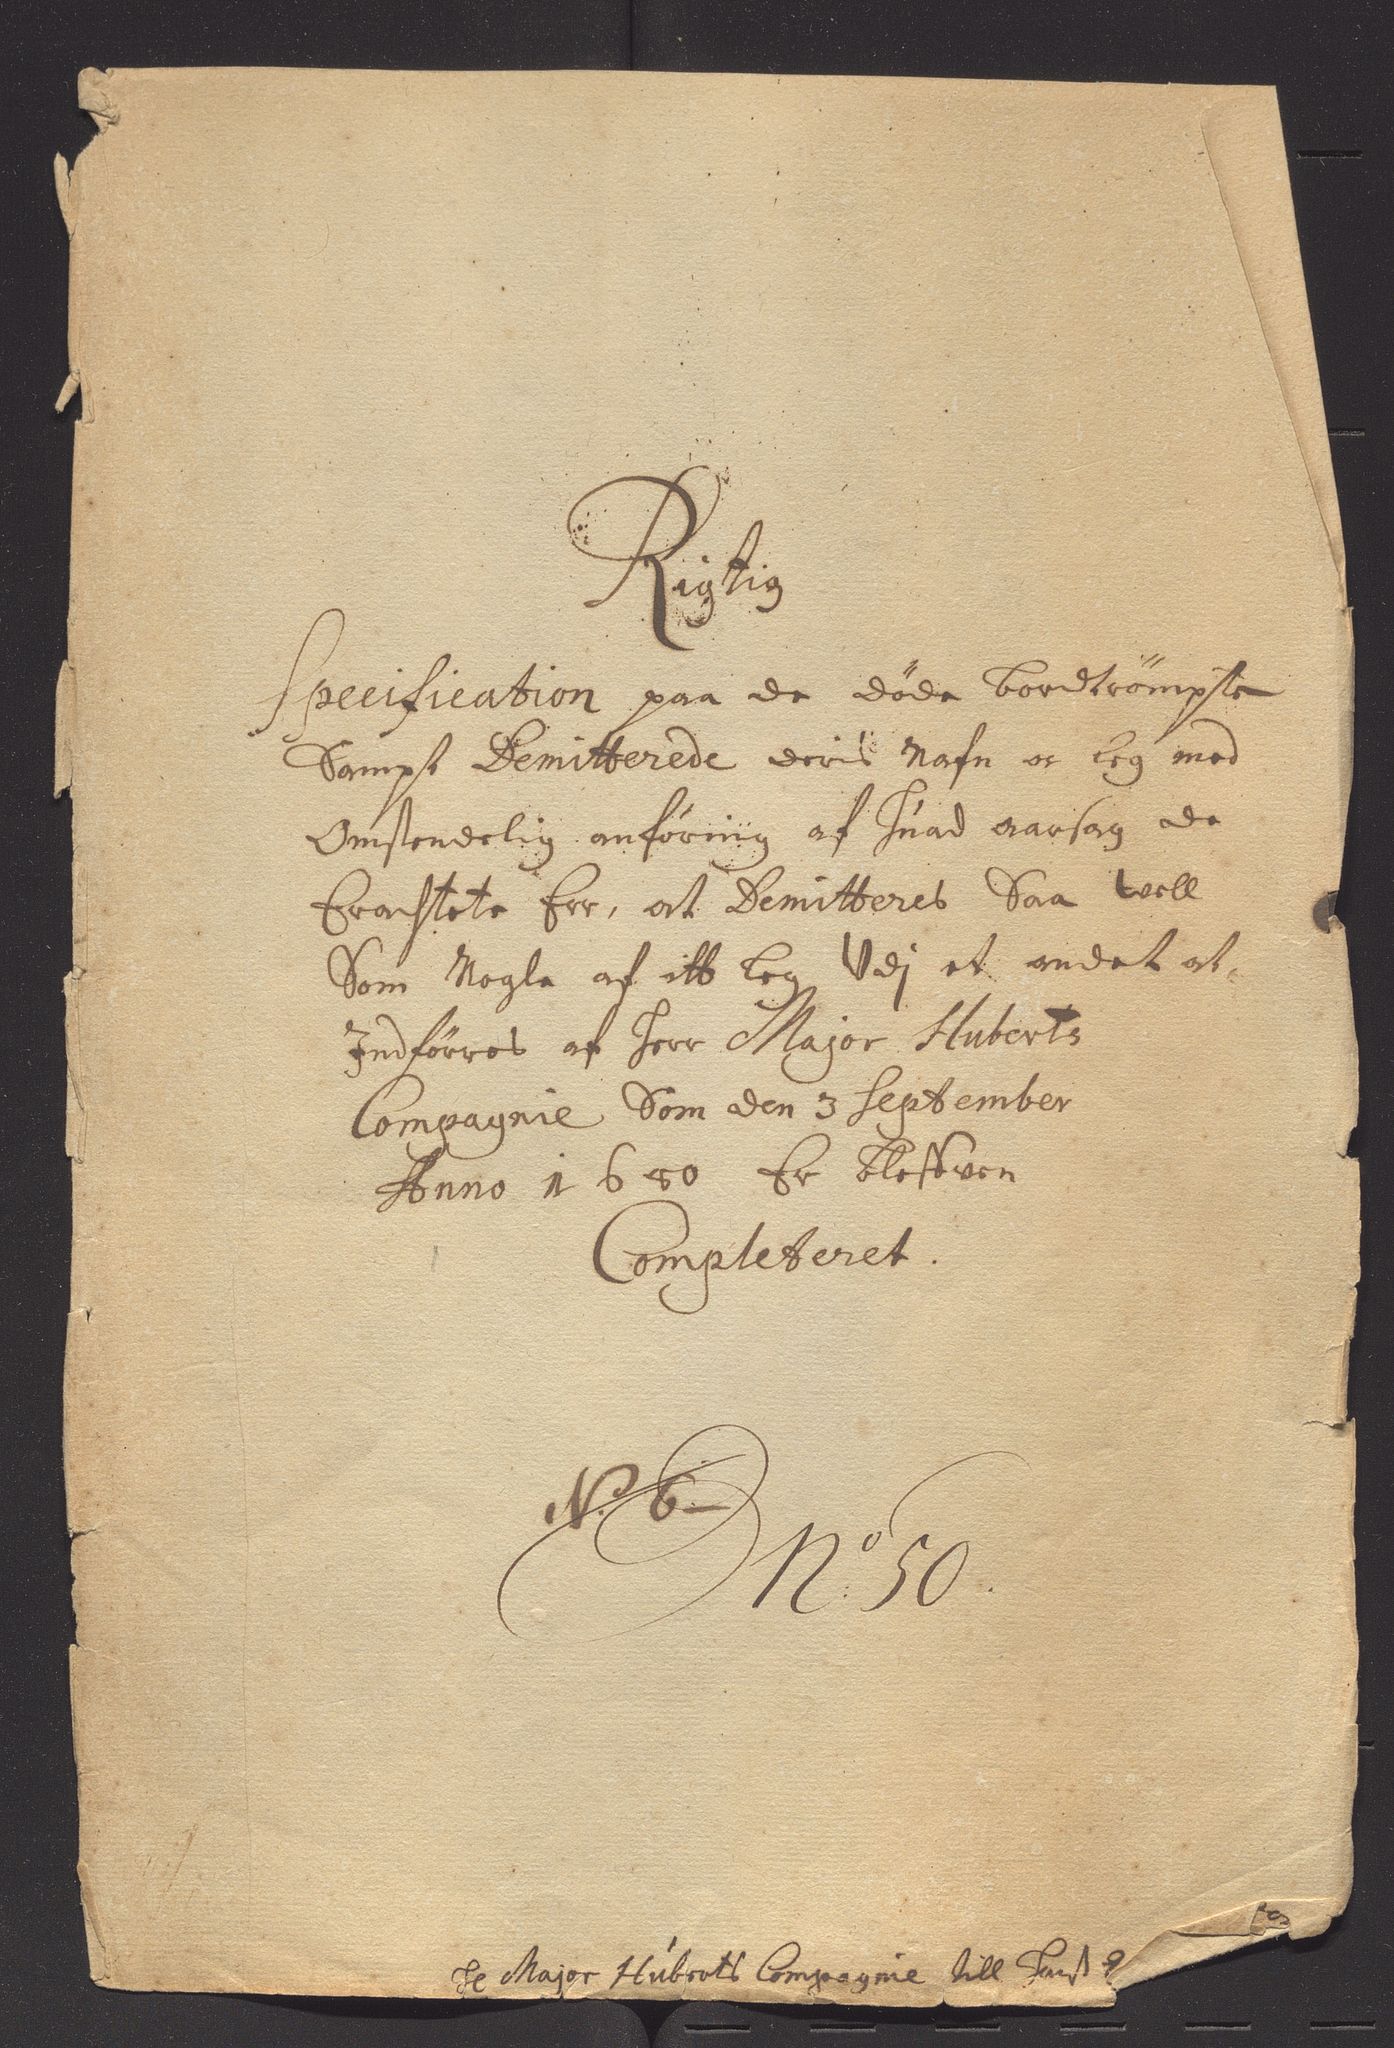 Rigtig
Specification paa de döde bordtrömpste
Sampt Demitterede deris Nafn oc leg med
Omstendelig anföring af huad aarsag de
Erachtete Err, at Demitteres Saa well
Som Nogle af itt leg Udj et andet at
Indförres af Herr Major Huberts
Compagnie Som den 3 September
Anno 1680 Er bleffven
Completeret.
No. 6
No. 50.
Major Huberts Compagnie till